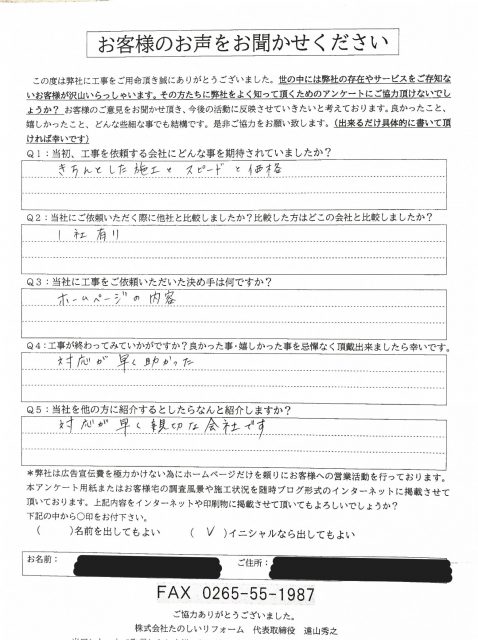 お客様のお声をお聞かせください
この度は弊社に工事をご用命頂き誠にありがとうございました。世の中には弊社の存在やサービスをご存知な
いお客様が沢山いらっしゃいます。その方たちに弊社をよく知って頂くためのアンケートにご協力頂けないでし
ょうか？ お客様のご意見をお聞かせ頂き、今後の活動に反映させていきたいと考えております。良かったこと、
嬉しかったこと、どんな些細な事でも結構です。是非ご協力をお願い致します。(出来るだけ具体的に書いて頂
ければ幸いです)
Q1：当初、工事を依頼する会社にどんな事を期待されていましたか？
きちんとした施工と スピードと価格
Q2：当社にご依頼いただく際に他社と比較しましたか？比較した方はどこの会社と比較しましたか？
1社有り
Q3：当社に工事をご依頼いただいた決め手は何ですか？
ホームページの内容
Q4：工事が終わってみていかがですか？良かった事・嬉しかった事を忌憚なく頂戴出来ましたら幸いです。
対応が早く助かった
Q5：当社を他の方に紹介するとしたらなんと紹介しますか？
対応が早く親切な会社です
＊弊社は広告宣伝費を極力かけない為にホームページだけを頼りにお客様への営業活動を行っております。
本アンケート用紙またはお客様宅の調査風景や施工状況を随時ブログ形式のインターネットに掲載させて
頂いております。上記内容をインターネットや印刷物に掲載させて頂いてもよろしいでしょうか？
下記の中から○印をお付下さい。
(　　)名前を出してもよい　　(　V　)イニシャルなら出してもよい
お名前：　　ご住所：
FAX 0265-55-1987
ご協力ありがとうございました。
株式会社たのしいリフォーム　代表取締役　遠山秀之